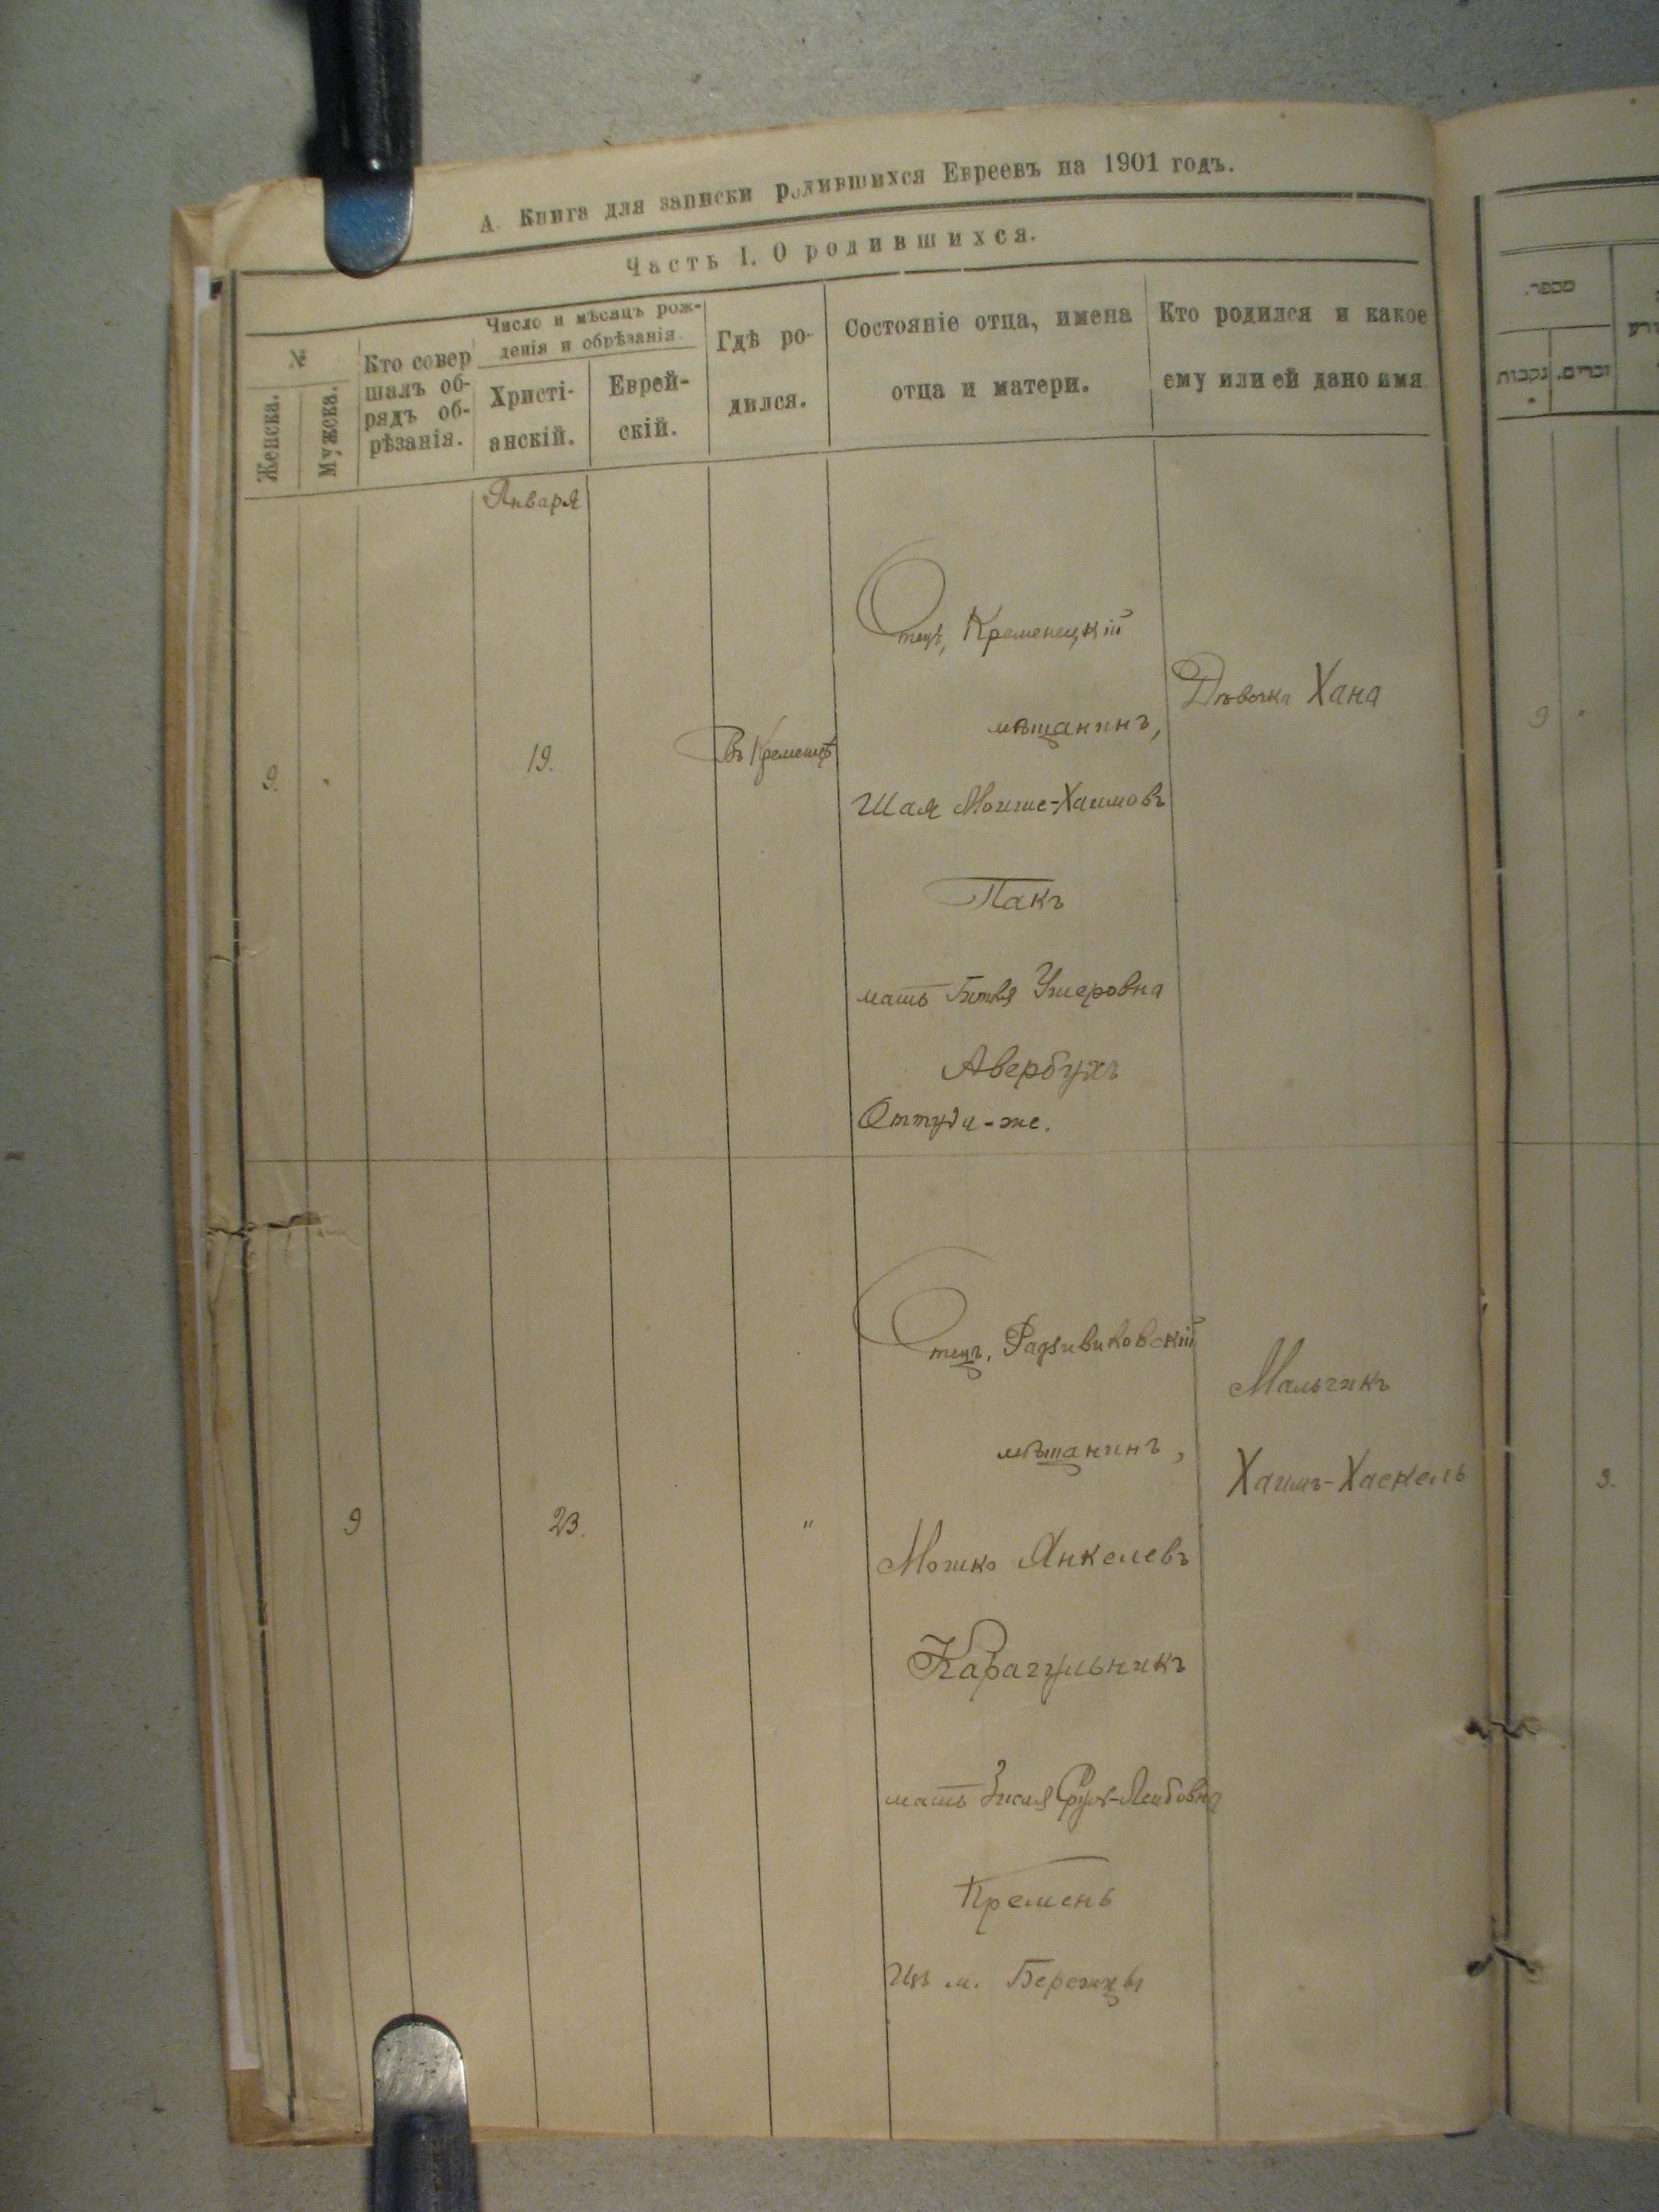 А. Книга для записки родившихся Евреевъ на 1901 годъ.
Часть I. О родившихся.
№
Женска.
Мужска.
Кто совер
шалъ об-
рядъ об-
рѣзанія.
Число и мѣсяцъ рож-
денія и обрѣзанія.
Христі-
анскій.
Еврей-
скій.
Гдѣ ро-
дился.
Состояніе отца, имена
отца и матери.
Кто родился и какое
ему или ей дано имя
Января
9.
19.
Въ Кременцѣ
Отецъ, Кременецкій
мѣщанинъ,
Шая Мошие-Хаимовъ
Пакъ
мать Битля Ушеровна
Авербухъ
Оттуда-же.
Дѣвочка Хана
9
23.
"
Отецъ, Радзивиловскій
мѣщанинъ,
Мошко Янкелевъ
Карагульникъ
мать Зисля -Лейбовна
Кремень
Изъ м. Бережцы
Мальчикъ
Хаимъ-Хаскель
מספר.
נקבות
זכרים.
9
9.